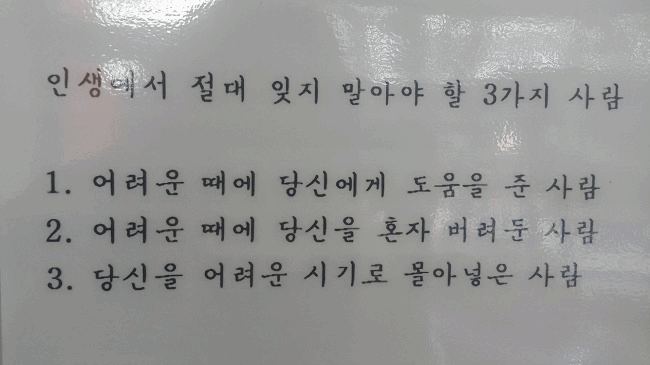 인생에서 절대 잊지 말아야 할 3가지 사람
1. 어려운 때에 당신에게 도움을 준 사람
2. 어려운 때에 당신을 혼자 버려둔 사람
3. 당신을 어려운 시기로 몰아넣은 사람